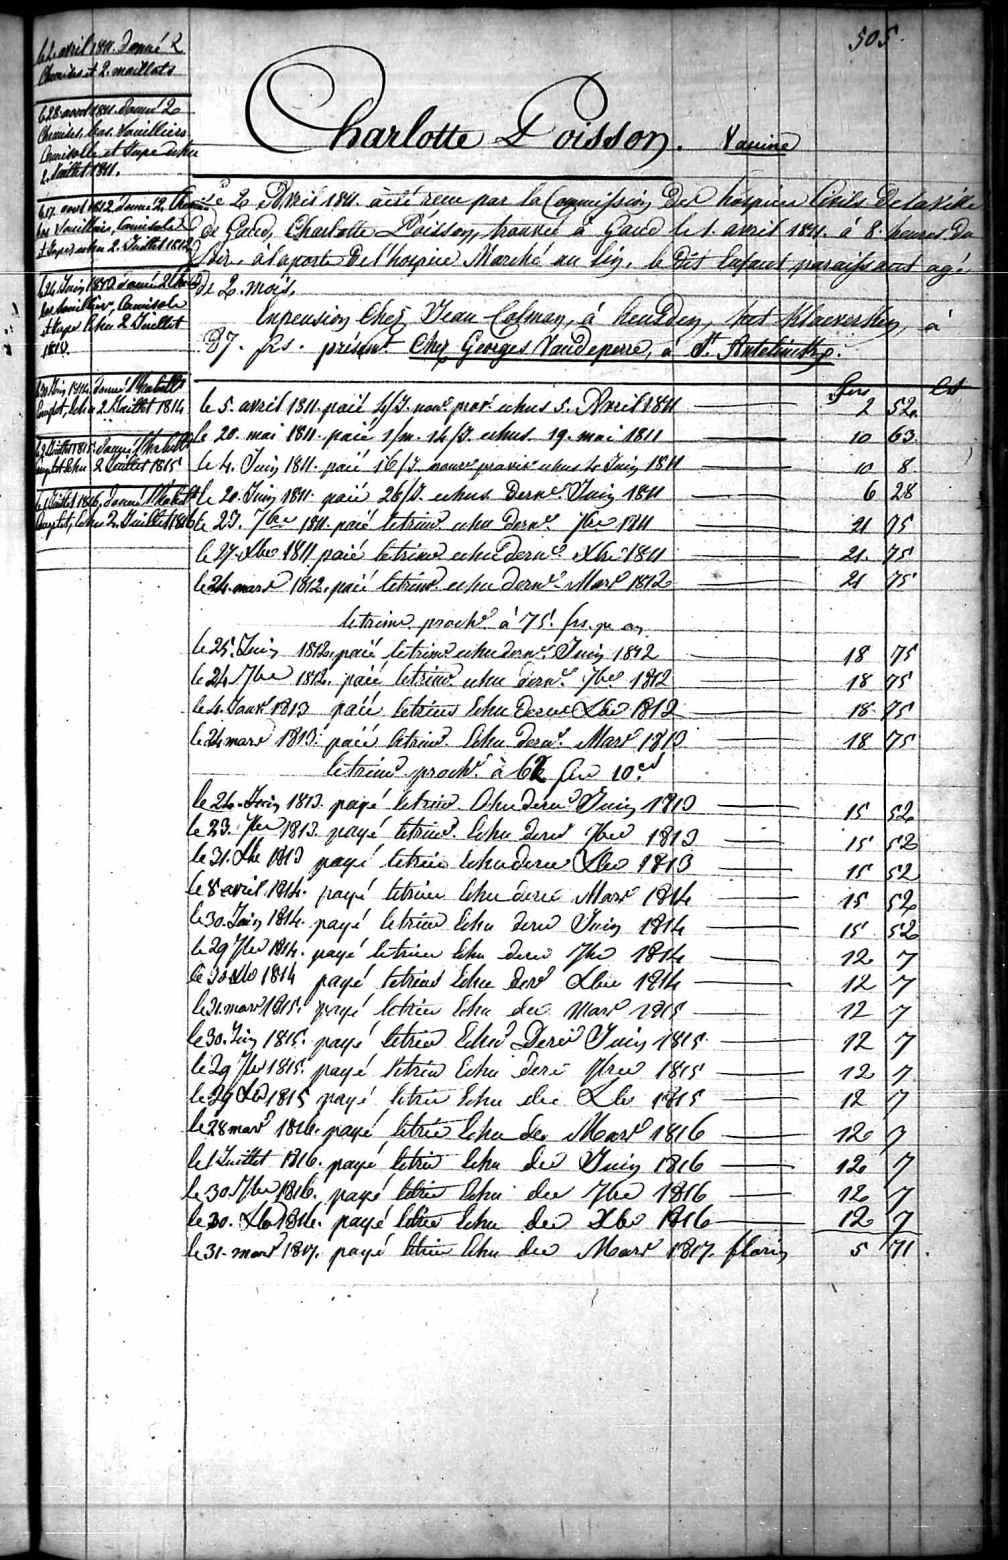 505.
Charlotte Poisson. Vaccine
Le 2 Avril 1811. a été reçu par la Commission des hospices Civils de la ville
de Gand, Charlotte Poisson, trouvée à Gand le 1. avril 1811. à 8. heures du
Soir, à la porte de l'hospice Marché au lin, le dit Enfant paraissant agé
de 2. mois.
En pension Chez Jean Colman, à heusden, à
87. frs. présent Chez Georges Vandeperre, à St.
le 2 avril 1811. donné 2
Chemises et 2. maillots
le 28 aout 1811. donné 2
Chemises, bas, Souilliers
Camisolle et Jupe
2. Juillet 1811.
le 17. aout 1812. donné 2. Chem
bas Souilliers, Camisole
et Jupe echu 2. Juillet 1812
le 24 Juin 1813 donné 2 Chem
bas Souilliers, Camisole
et Jupe Echu 2 Juillet
1813.
le 30 Juin 1814. donné l'habill
Complet, Echu 2. Juillet 1814
Juillet 1815. donné l'habill
complet Echu 2 Juillet 1815
le 1 Juillet 1816. donné l'habill
Complet, Echu 2. Juillet 1816
frs Cs
le 5. avril 1811. paié 4/J. nour. prov. echus 5. Avril 1811 2 52
le 20. mai 1811. paié 1/m. 14/J. echus 19. mai 1811 10 63
le 4. Juin 1811. paié 16/J. nour provis echus 4 Juin 1811 10 8
le 20. Juin 1811. paié 26/J. echus dern. Juin 1811 6 28
le 23. 7bre 1811. paié le trim. echu dern. 7bre 1811 21 75
le 27. Xbre 1811 paié le trim echu dern. Xbre 1811 21. 75
le 24. mars 1812. paié le trim. echu dern. Mars 1812 21 75
le trim. proch. à 75. frs. pr an
le 25. Juin 1812. paié le trim. echu dern. Juin 1812 18 75
le 24 7bre 1812. paié le trim. echu dern. 7bre 1812 18 75
le 4. Janv. 1813 paié le trim Echu dern Xbre 1812 18 75
le 24 mars 1813. paié le trim. Echu dern. Mars 1813 18 75
le trim. proch. à 62 frs 10 cs
le 24. Juin 1813. payé le trim. Echu dern. Juin 1813 15 52
le 23. 7bre 1813. payé le trim. Echu dern 7bre 1813 15 52
le 31. Xbre 1813 payé le trim Echu dern Xbre 1813 15 52
le 8 avril 1814. payé le trim Echu dern Mars 1814 15 52
le 30. Juin 1814. payé le trim Echu dern Juin 1814 15 52
le 29 7bre 1814. payé le trim Echu dern 7bre 1814 12 7
le 30 Xbre 1814 payé le trim Echu der Xbre 1814 12 7
le 31. mars 1815. payé le trim Echu der Mars 1815 12 7
le 30. Juin 1815. payé le trim Echu Dern Juin 1815. 12 7
le 29 7bre 1815. payé le trim Echu dern 7bre 1815 12 7
le 29 Xbre 1815 payé le trim Echu der Xbre 1815 12 7
le 28 mars 1816. payé le trim Echu der Mars 1816 12 7
le 1 Juillet 1816. payé le trim Echu der Juin 1816 12 7
le 30. 7bre 1816. payé le trim Echu der 7bre 1816 12 7
le 30. Xbre 1816. payé le trim Echu der Xbre 1816 12 7
le 31. mars 1817. payé le trim Echu der Mars 1817. florins 5 71.